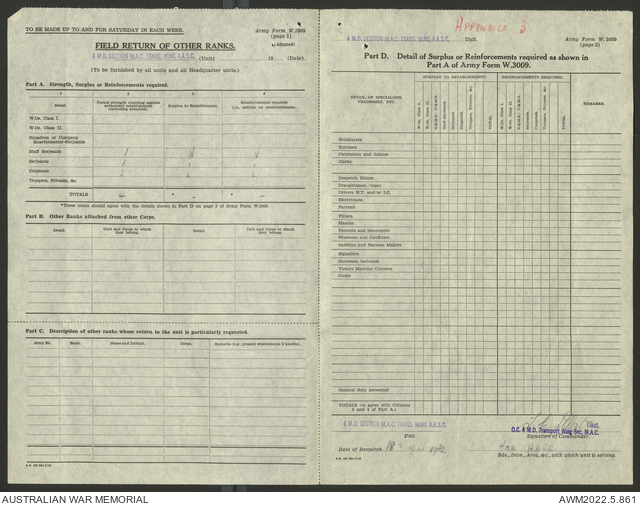 TO BE MADE UP TO AND FOR SATURDAY IN EACH WEEK.
Army Form W.3009
(page 1)
(Adapted)
FIELD RETURN OF OTHER RANKS.
4 M.D. SECTION M.A.C. TRANS. WING A.A.S.C. (Unit) 19 (Date).
(To be furnished by all units and all Headquarter units.)
Part A. Strength, Surplus or Reinforcements required.
1 2 3 4
Detail Posted strength counting against authorized establishment (excluding attached). Surplus to Establishment. Reinforcements required (i.e., deficit on establishment).
W.Os. Class I.
W.Os. Class II.
Squadron or Company
Quartermaster-Serjeants
Staff Serjeants
Serjeants
Corporals
Troopers, Privates, &c.
TOTALS
*These totals should agree with the details shown in Part D on page 2 of Army Form W.3009.
Part B. Other Ranks attached from other Corps.
Detail. Unit and Corps to which they belong. Detail. Unit and Corps to which they belong.
Part C. Description of other ranks whose return to the unit is particularly requested.
Army No. Rank. Name and Initials. Corps. Remarks (e.g., present whereabouts if known).
APPENDICE 3
4 M.D. SECTION M.A.C. TRANS. WING A.A.S.C. Unit.
Army Form W.3009
(page 2)
Part D. Detail of Surplus or Reinforcements required as shown in
Part A of Army Form W.3009.
DETAIL OF SPECIALISTS, TRADESMEN, ETC.
SURPLUS TO ESTABLISHMENT. REINFORCEMENTS REQUIRED.
W.Os. Class I. W.Os. Class II. Serjeants Corporals Troopers, Privates, &c. TOTAL.
REMARKS.
Bricklayers
Butchers
Carpenters and Joiners
Clerks
Despatch Riders
Draughtsmen (topo)
Drivers H.T. and/or I.C.
Electricians
Farriers
Fitters
Masons
Painters and Decorators
Plumbers and Gasfitters
Saddlers and Harness Makers
Signallers
Storemen technical
Vickers Machine Gunners
Cooks
General duty personnel
TOTALS (to agree with Columns
3 and 4 of Part A.)
4 M.D. SECTION M.A.C. TRANS. WING A.A.S.C.
Unit.
Lieut.
O.C. 4 M.D. Transport Wing Sec. M.A.C.
Signature of Commander.
Date of Despatch 18th April 1942
Bde., Divn., Area, &c., with which unit is serving.
AUSTRALIAN WAR MEMORIAL
AWM2022.5.861